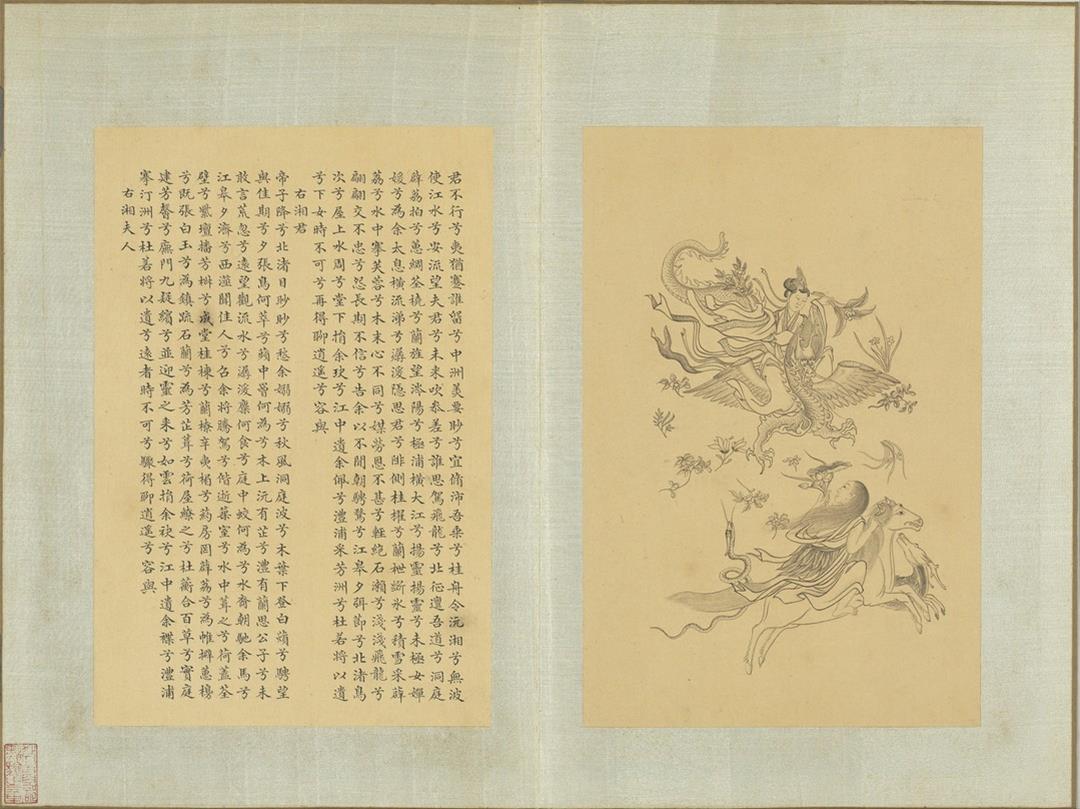 君不行兮夷猶蹇誰留兮中洲美要眇兮宜脩沛吾乘兮桂舟令沅湘兮無波
使江水兮安流望夫君兮未來吹參差兮誰思駕飛龍兮北征邅吾道兮洞庭
薜荔拍兮蕙綢荃橈兮蘭旌望涔陽兮極浦橫大江兮揚靈揚靈兮未極女嬋
媛兮為余太息橫流涕兮潺湲隱思君兮陫側桂櫂兮蘭枻斲氷兮積雪采薜
荔兮水中搴芙蓉兮木末心不同兮媒勞恩不甚兮輕絶石瀨兮淺淺飛龍兮
翩翩交不忠兮怨長期不信兮告余以不閒朝騁騖兮江皋夕弭節兮北渚鳥
次兮屋上水周兮堂下捐余玦兮江中遺余佩兮澧浦采芳洲兮杜若將以遺
兮下女時不可兮再得聊逍遙兮容與
右湘君
帝子降兮北渚目眇眇兮愁余嫋嫋兮秋風洞庭波兮木葉下登白薠兮騁望
與佳期兮夕張鳥何萃兮蘋中罾何為兮木上沅有芷兮澧有蘭思公子兮未
敢言荒忽兮遠望觀流水兮潺湲麋何食兮庭中蛟何為兮水裔朝馳余馬兮
江皋夕濟兮西澨聞佳人兮召余將騰駕兮偕逝築室兮水中葺之兮荷蓋荃
壁兮紫壇播芳椒兮成堂桂棟兮蘭橑辛夷楣兮葯房罔薜荔兮為帷擗蕙櫋
兮既張白玉兮為鎮疏石蘭兮為芳芷葺兮荷屋繚之兮杜蘅合百草兮實庭
建芳馨兮廡門九疑繽兮並迎靈之來兮如雲捐余袂兮江中遺余褋兮澧浦
搴汀洲兮杜若將以遺兮遠者時不可兮驟得聊逍遙兮容與
右湘夫人